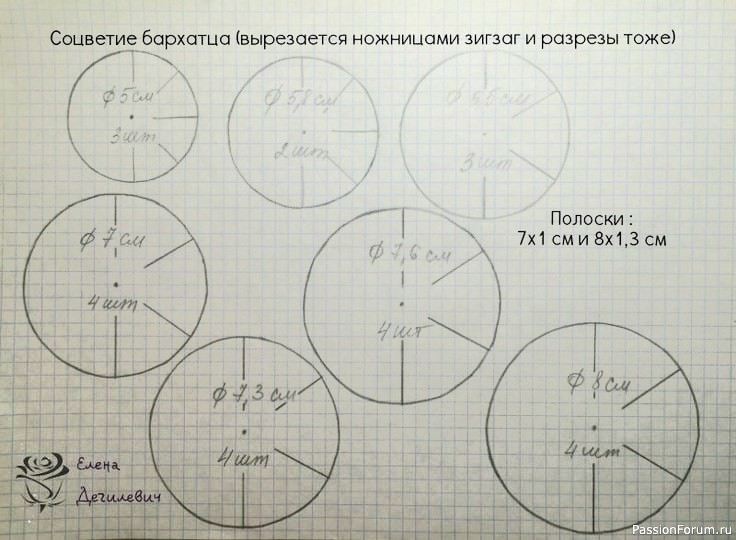 Соцветие бархатца (вырезается ножницами зигзаг и разрезы тоже)
ϕ 5 см
3 шт
ϕ 5,8 см
2 шт
ϕ 6,5 см
3 шт
ϕ 7 см
4 шт
ϕ 7,6 см
4 шт
Полоски :
7х1 см и 8х1,3 см
ϕ 7,3 см
4 шт
ϕ 8 см
4 шт
Елена
Дегилевич
PassionForum.ru